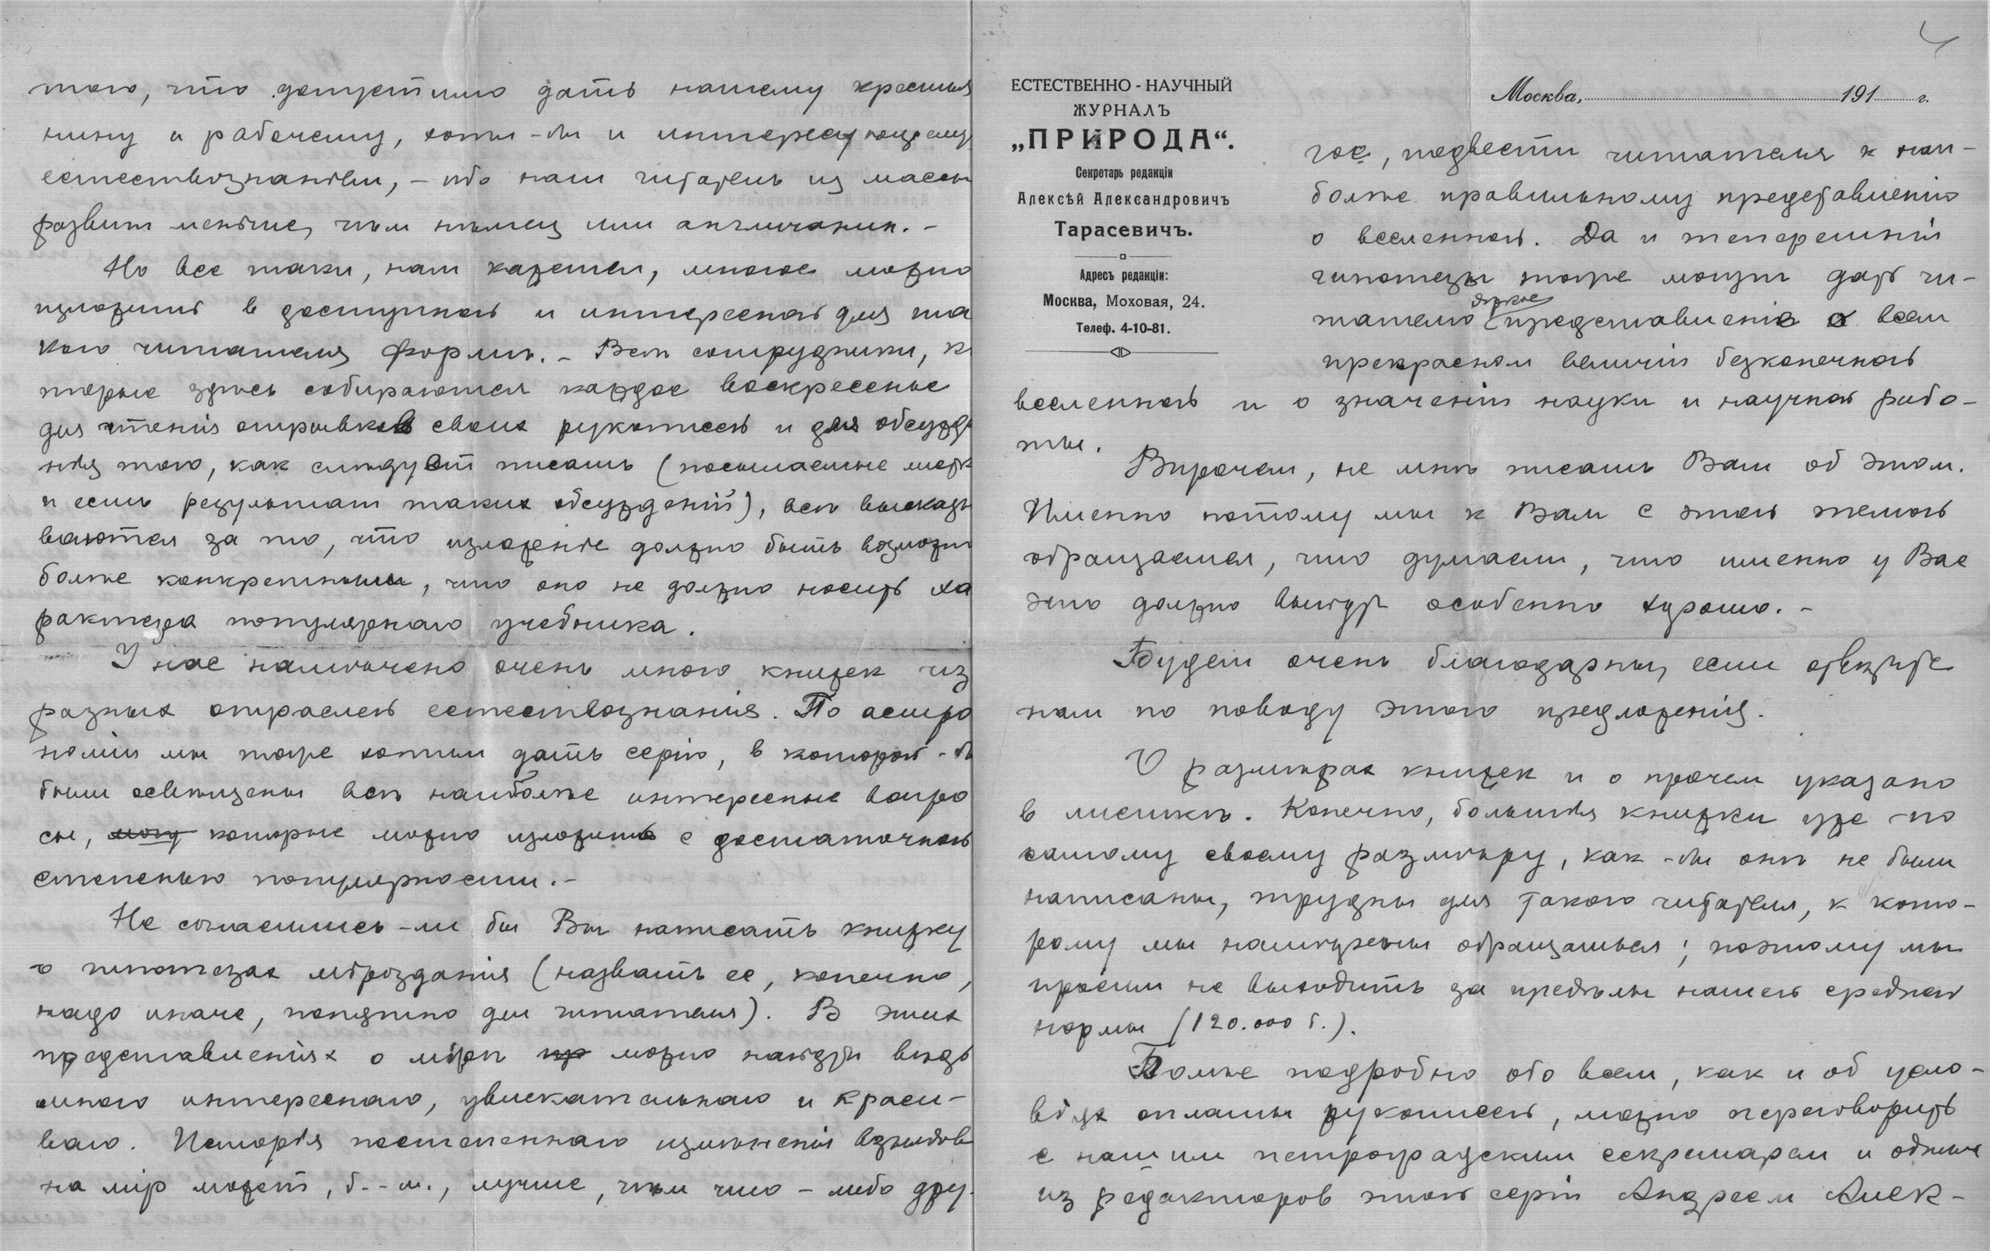 того, что допустимо дать нашему крестья
нину и рабочему, хотя-бы и интересующемуся
естествознанiем, – ибо наш читатель из массы
развит меньше, чем немец или англичанин. –
Но все таки, нам кажется, многое можно
изложить в доступной и интересной для та
кого читателя форме. – Все сотрудники, ко
торые здесь собираются каждое воскресенье
для чтенiя отрывков своих рукописей и для обсужде
нiя того, как следует писать (посылаемые листк
и есть результат таких обсужденiй), все высказы
ваются за то, что изложенiе должно быть возможно
более конкретным, что оно не должно носить ха
рактера популярнаго учебника.
У нас намечено очень много книжек из
разных отраслей естествознанiя. По астро
номiи мы тоже хотим дать серiю, в которой-бы
были освещены все наиболее интересные вопро
сы, могу которые можно изложить с достаточной
степенью популярности. –
Не согласились-ли бы Вы написать книжку
о гипотезах мiрозданiя (назвать ее, конечно,
надо иначе, понятно для читателя). В этих
представленiях о мiре пр можно найти ведь
много интереснаго, увлекательнаго и краси-
ваго. Исторiя постепеннаго измененiя взглядов
на мiр может, б.-м., лучше, чем что-либо дру-
ЕСТЕСТВЕННО-НАУЧНЫЙ
ЖУРНАЛЪ
„ПРИРОДА“.
Секретарь редакцiи
Алексѣй Александровичъ
Тарасевичъ.
Адресъ редакцiи:
Москва, Моховая, 24.
Телеф. 4-10-81.
Москва, 191 г.
гое, подвести читателя к наи-
более правильному представленiю
о вселенной. Да и теперешнiя
гипотезы тоже могут дать чи-
тателю яркое представленiе о всем
прекрасном величiи безконечной
вселенной и о значенiи науки и научной рабо-
ты.
Впрочем, не мне писать Вам об этом.
Именно потому мы к Вам с этой темой
обращаемся, что думаем, что именно у Вас
это должно выйти особенно хорошо. –
Будем очень благодарны, если ответите
нам по поводу этого предложенiя.
О размерах книжек и о прочем указано
в листке. Конечно, большiя книжки уже по
самому своему размеру, как-бы оне не были
написаны, трудны для такого читателя, к кото-
рому мы намерены обращаться; поэтому мы
просим не выходить за пределы нашей средней
нормы (120.000 б.).
Более подробно обо всем, как и об усло-
вiях оплаты рукописей, можно переговорить
с нашим петроградским секретарем и одним
из редакторов этой серiи Андреем Алек-